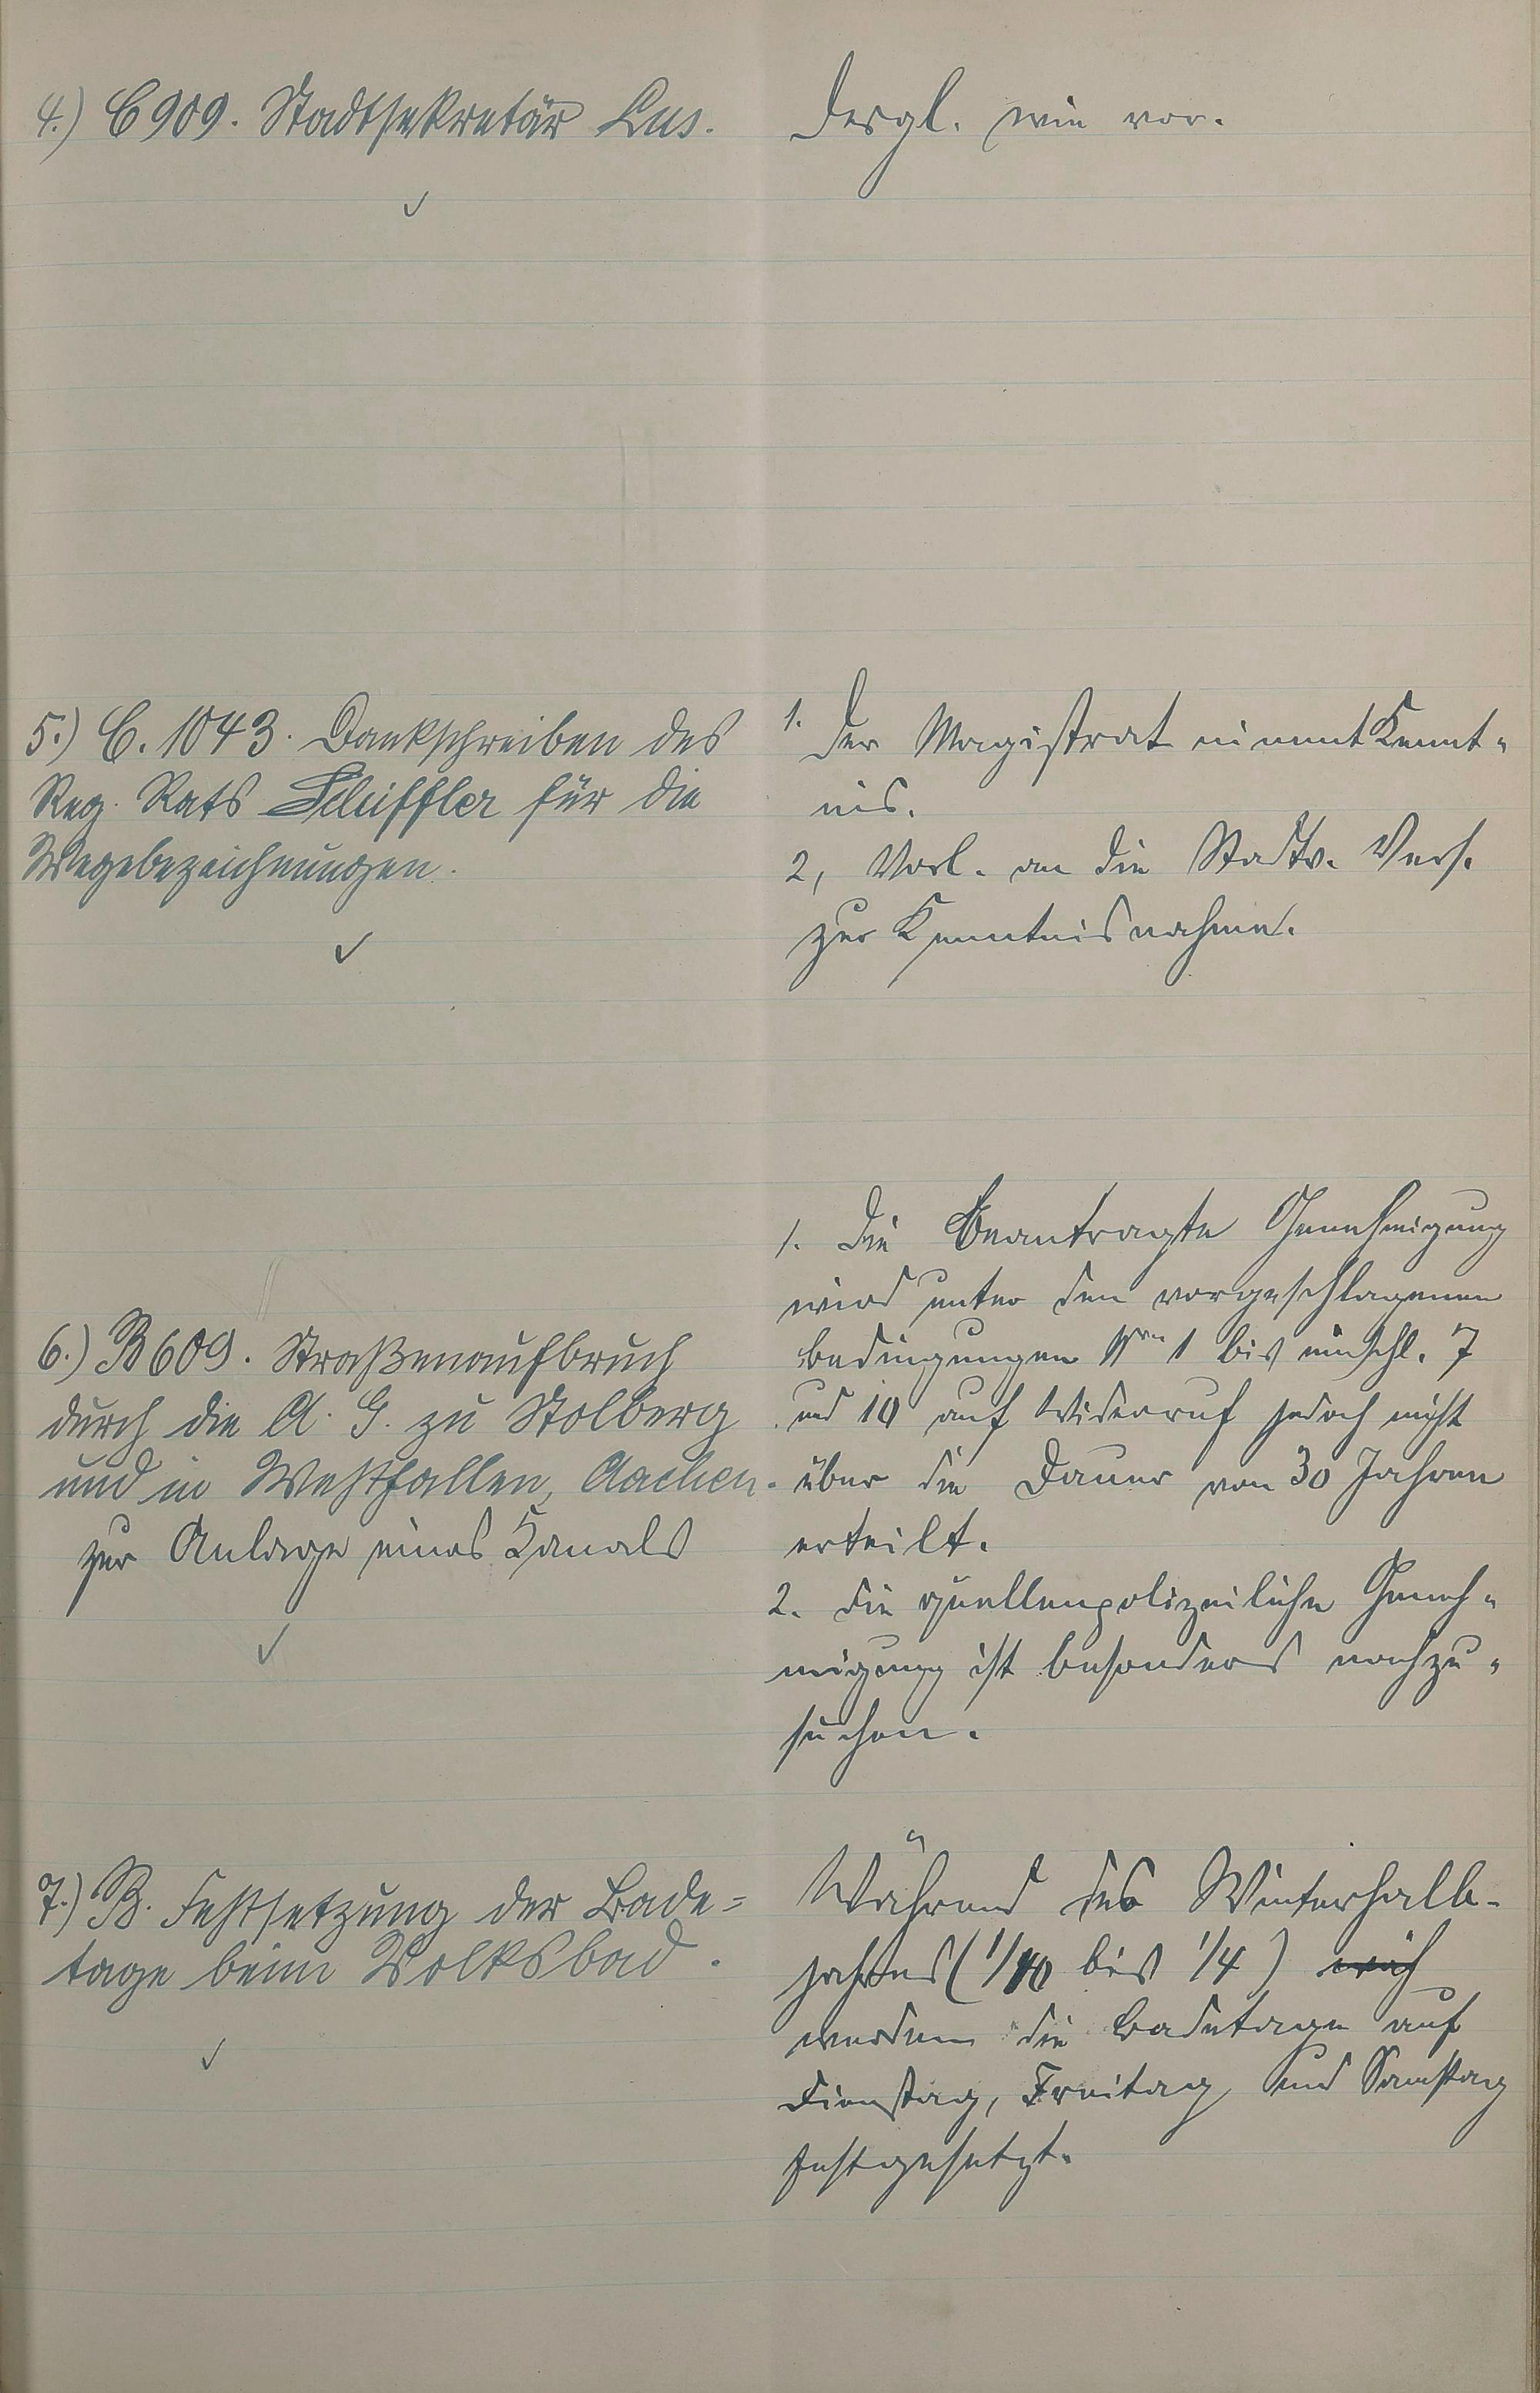 4.) C 909. Stadtsekretär Lus.
Desgl. wie vor.
5.) C. 1043. Dankschreiben des
Reg. Rats Schiffler für die
Wegebezeichnungen.
1. Der Magistrat nimmt Kennt-
nis.
2, Vorl. an die Stadtv. Vers.
zur Kenntnisnahme.
6.) B 609. Straßenaufbruch
durch die A. G. zu Stolberg
und in Westfallen, Aachen.
zur Anlage eines Kanals
1. Die Beantragte Genehmigung
wird unter den vorgeschlagenen
Bedingungen Nrn 1 bis einschl. 7
und 10 auf Widerruf jedoch nicht
über die Dauer von 30 Jahren
erteilt.
2. Die quellenpolizeiliche Geneh-
migung ist besonders nachzu-
suchen.
7.) B. Festsetzung der Bade=
tage beim Volksbad.
Während des Winterhalb-
jahres (1/10 bis 1/4)
werden die Badetage auf
Dienstag, Freitag und Samstag
festgesetzt.